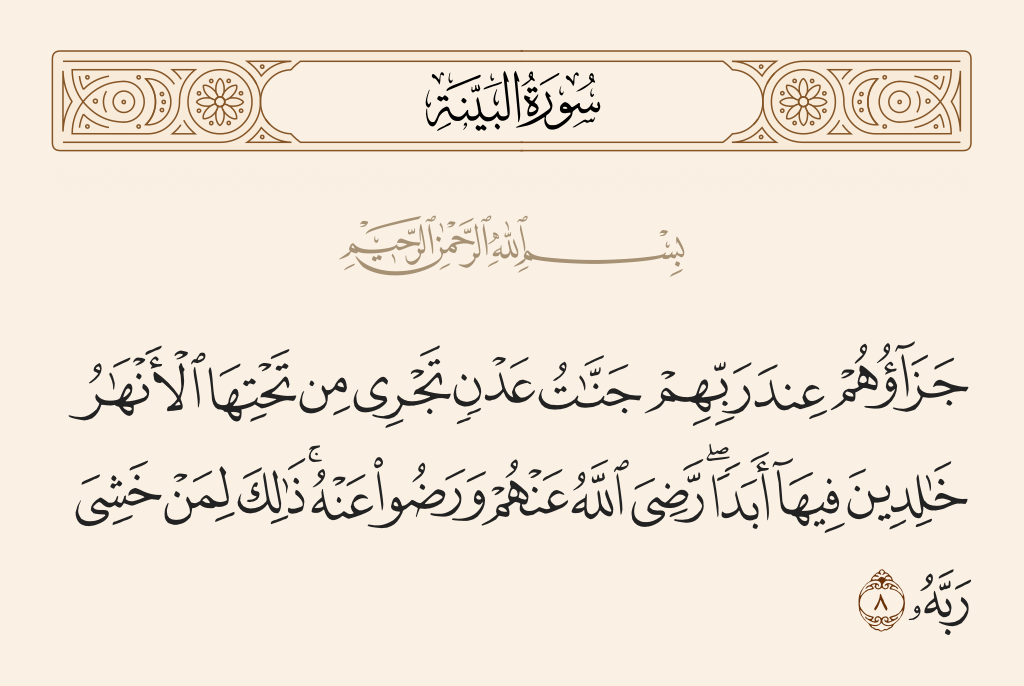 سُورَةُ البَيِّنَةِ
بِسْمِ ٱللَّهِ ٱلرَّحْمَٰنِ ٱلرَّحِيمِ
جَزَآؤُهُمْ عِندَ رَبِّهِمْ جَنَّٰتُ عَدْنٍ تَجْرِى مِن تَحْتِهَا ٱلْأَنْهَٰرُ
خَٰلِدِينَ فِيهَآ أَبَدًا ۖ رَّضِىَ ٱللَّهُ عَنْهُمْ وَرَضُوا۟ عَنْهُ ۚ ذَٰلِكَ لِمَنْ خَشِىَ
رَبَّهُۥ ٨